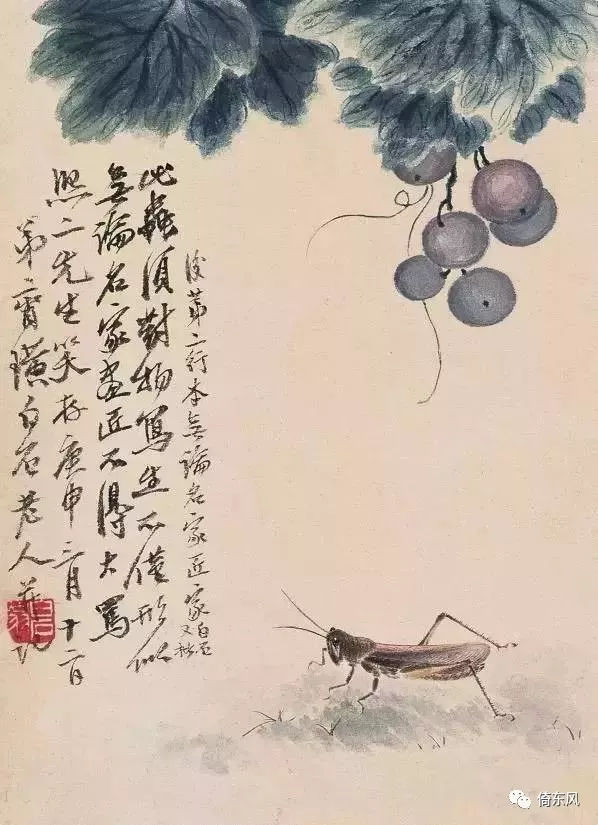 後第二行本無論名家匠家白石又
此蟲須對物寫生不僅形似
無論名家畫匠不得大罵
熙二先生笑存庚申三月十二日
弟齊璜白石老人并記
白石翁
倚东风